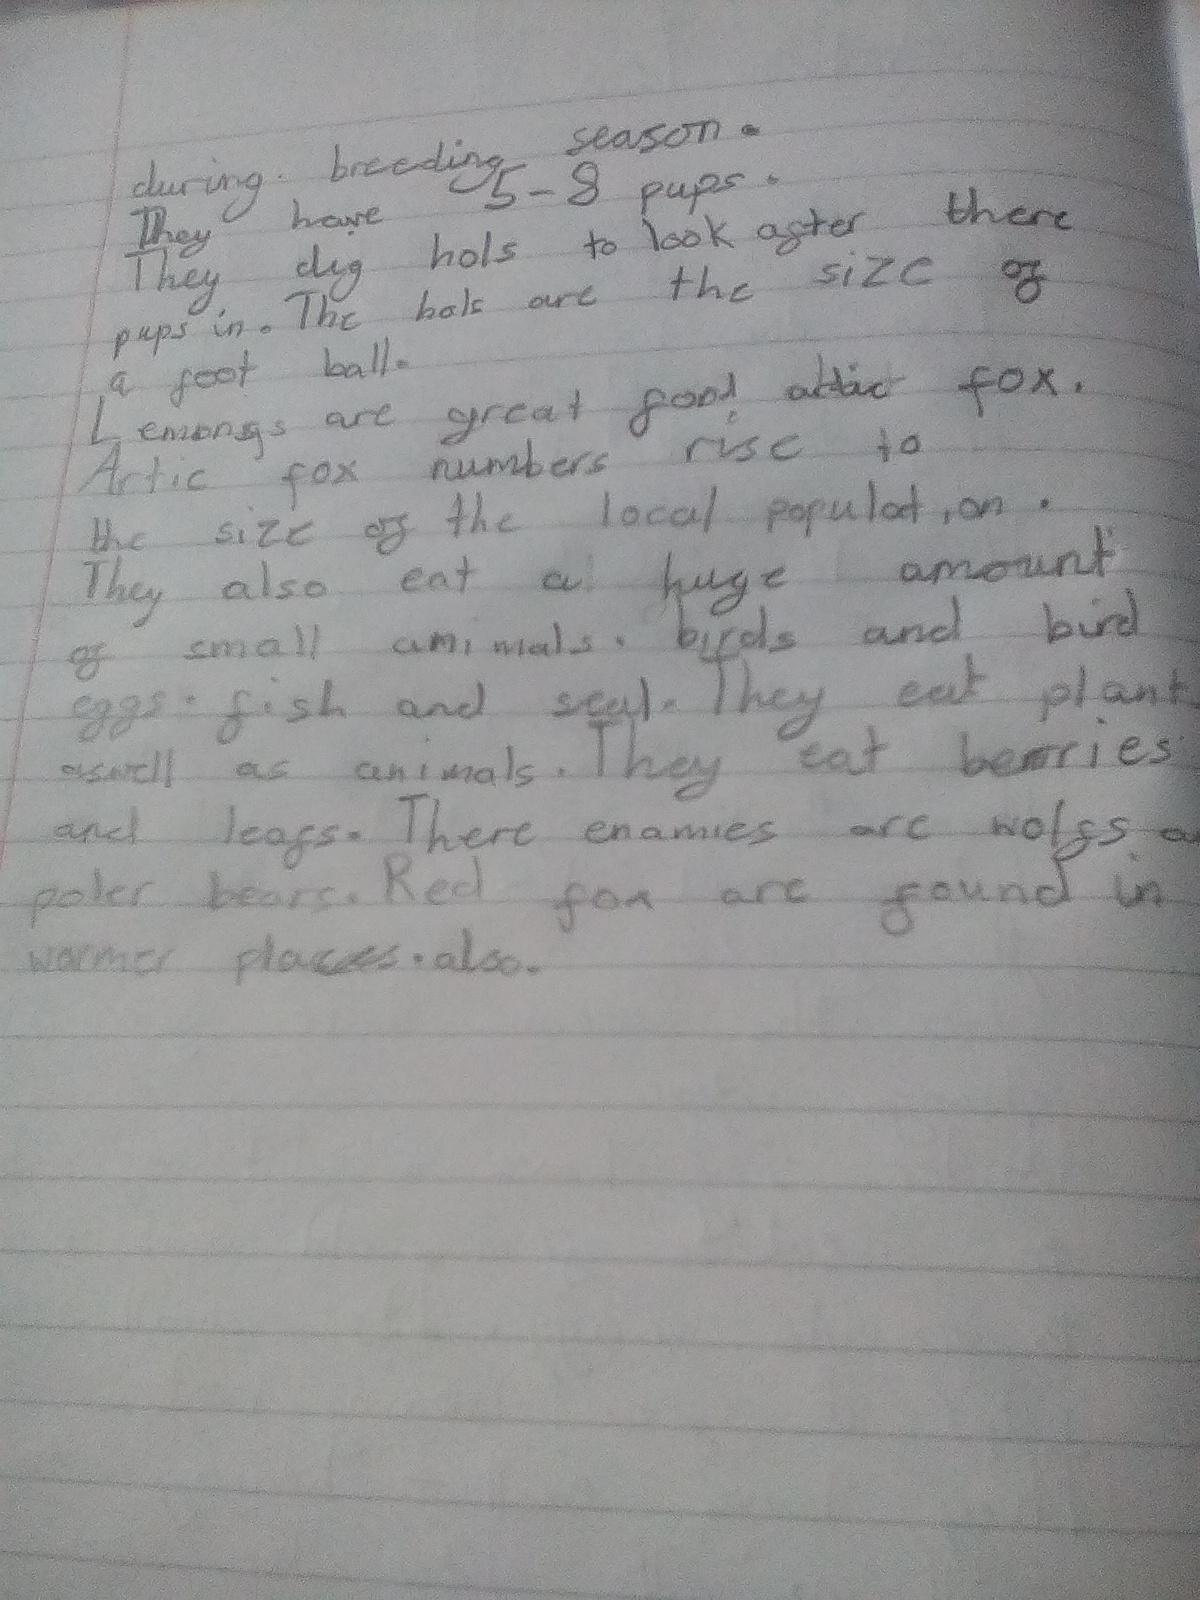 during. breeding season.
They have 5-8 pups.
They dig hols to look after there
pups in. The hols are the size of
a foot ball.
Lemongs are great food attic fox.
Artic fox numbers rise to
the size of the local population.
They also eat a huge amount
of small animals. birds and bird
eggs. fish and seal. They eat plant
aswell as animals. They eat berries
and leafs. There enamies are wolfs a
poler bears. Red fox are found in
warmer places. also.